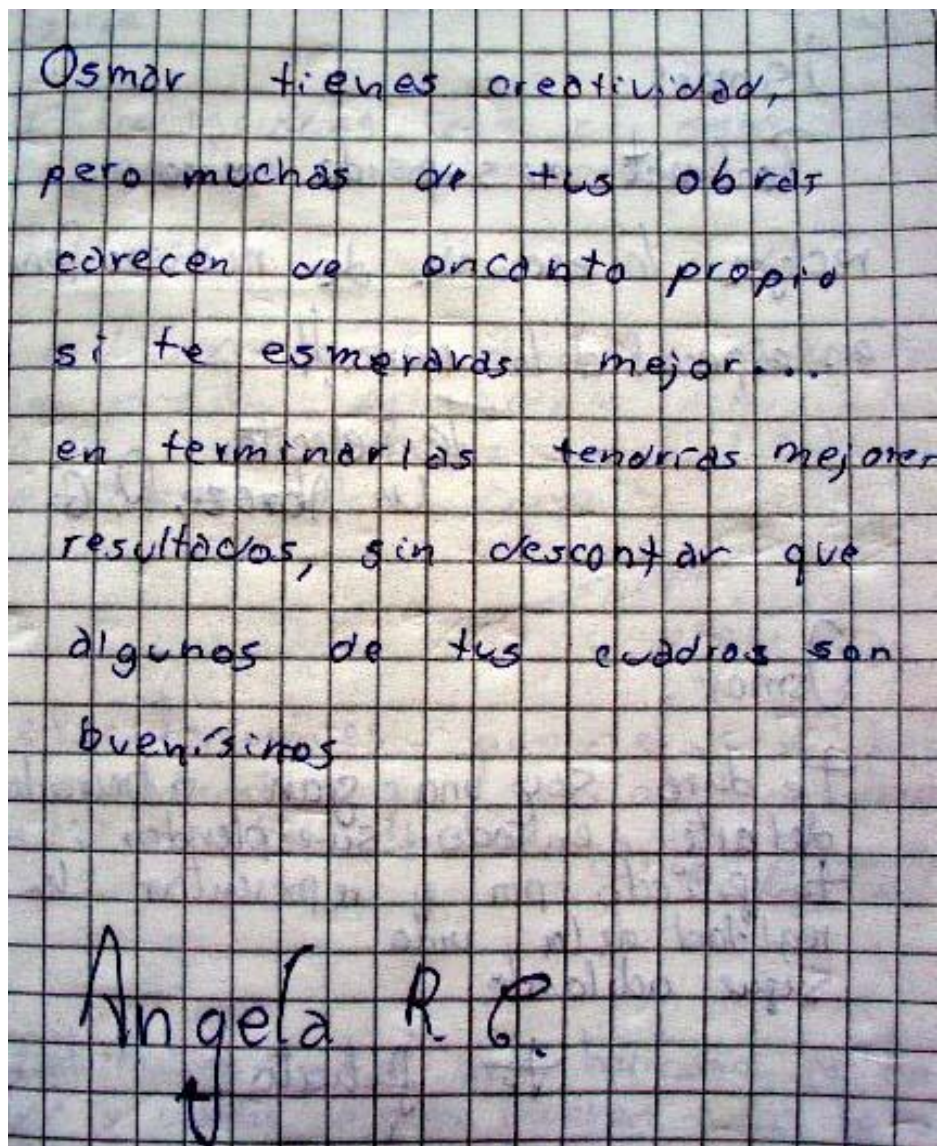 Osmar tienes creatividad,
pero muchas de tus obras
carecen de encanto propio
si te esmeraras mejor....
en terminarlas tendrias mejores
resultados, sin descontar que
algunos de tus cuadros son
buenísimos
Angela R C.